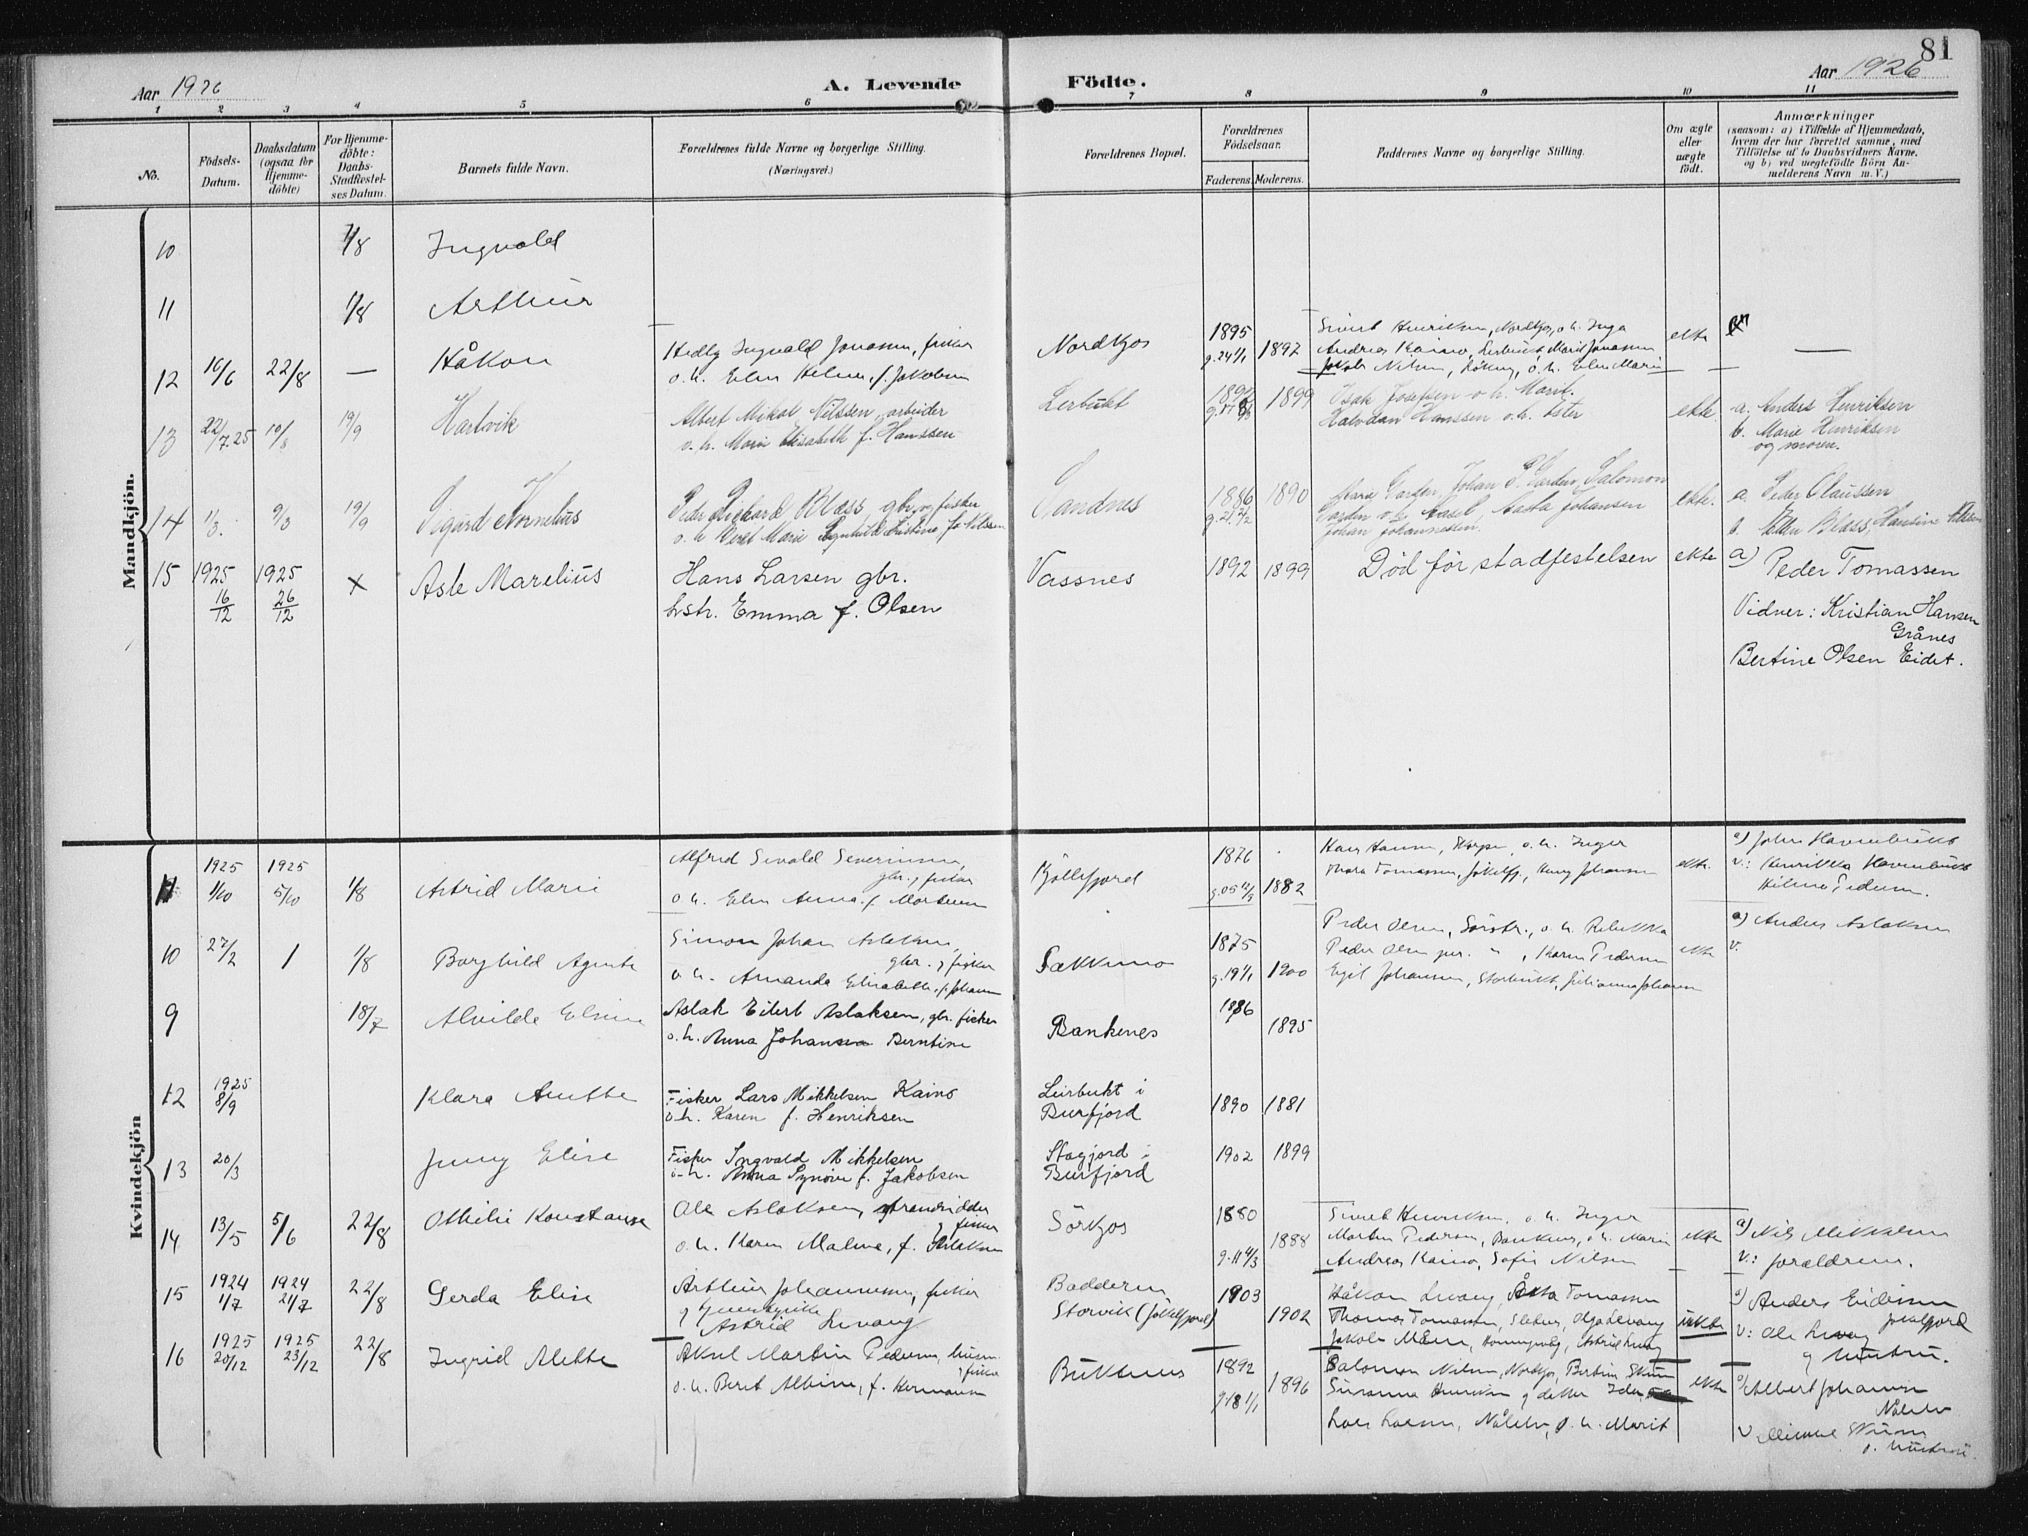 81
Aar 1926
A. Levende Födte.
Aar 1926
1 2 3 4 5 6 7 8 9 10 11
No.
Födsels-Datum.
Daabsdatum (ogsaa for Hjemme-döbte)
For Hjemme-döbte: Daabs-Stadfæstel-ses Datum.
Barnets fulde Navn.
Forældrenes fulde Navne og borgerlige Stilling.
(Næringsvei.)
Forældrenes Bopæl.
Forældrenes Födselsaar.
Faderens. Moderens.
Faddernes Navne og borgerlige Stilling.
Om ægte eller uægte födt.
Anmærkninger
(saasom: a) i Tilfælde af Hjemmedaab,
hvem der har forrettet samme, med
Tilföielse af to Daabsvidners Navne.
og b) ved uegtefödte Börn An-
melderens Navn m. V.)
Mandkjön.
10 1/8 Ingvald
11 1/8 Arthur
12 16/6 22/8 — Håkon
Hedly Ingvald Jonassen, fisker
o.h. Elen Helene, f. Jakobsen
Nordkjos 1895 g.24 1/1 1897
Sivert Henriksen, Nordkjos, o.h. Inga
Andreas Kaino, Lerbukt, Marit Jonassen
Jakob Nilsen, o.h. Elen Marie
ekte —
13 22/7.25 10/8 19/9 Hartvik
Albert Mikal Nilssen, arbeider
o.h. Marie Elisabeth f. Hanssen
Lerbukt 1899
Isak Josefsen o.h. Marit.
Halvdan Hanssen o.h. Ester
ekte.
a. Anders Henriksen
b. Marie Henriksen
og moren.
14 1/3. 9/3 19/9 Sigurd Kornelius
Peder Rickard Blæss, gbr. og fisker
o.h. Beret Marie Ragnhild Kristine, f. Nilssen
Sandnes 1886 1890
Johan P. Garden, Salomon
Garden o.h. Aasel, Aasta Johansen
Johan Johannessen.
ekte.
a. Peder Claussen
b. Ellen Blæss, Hansine Nilssen
15 1925 16/12 1925 26/12 × Asle Marelius
Hans Larsen gbr.
hstr. Emma f. Olsen
Vassnes 1892 1899
Död för stadfestelsen
ekte
a) Peder Tomassen
Vidner: Kristian Hansen
Grånes
Bertine Olsen Eidet.
Kvindekjön
11 1925 1/10 1925 5/10 1/8 Astrid Marie
Alfred Sivald Severinsen,
gbr. og fisker
o.h. Elen Anna f. Mortensen
Kjöllefjord 1876 1882
o.h. Inger
Tomassen, Jökelfj., Johansen
ekte.
a) John Havnnbukt
v.: Henrikka Havnnbukt
Hilma Pedersen.
10 27/2 1 1/8 Borghild Agnete
Simon Johan Aslaksen,
gbr. og fisker
o.h. Amanda Elisabeth, f. Johansen
Sakkemo 1875 g.19 1/1 1900
Peder Olsen, Sörstr., o.h. Rebekka
Peder Olsen jun. " , Karen Pedersen
Egil Johansen, Storbukt, Julianna Johansen
ekte
a) Anders Aslaksen
v.
9 18/7 Alvilde Elvine
Aslak Eilert Aslaksen, gbr. fisker
o.h. Anna Johansen Berntine
Bankenes 1886 1895
12 1925 8/9 Klara Anette
Fisker Lars Mikkelsen Kaino
o.h. Karen f. Henriksen
Leirbukt i
Burfjord
1890 1881
13 20/3 Jenny Elise
Fisker Ingvald Mikkelsen
o.h. Anna Synöve f. Jakobsen
Stagjord i
Burfjord
1902 1899
14 13/5 5/6 22/8 Othilie Konstanse
Ole Aslaksen, strandsidder
og fisker
o.h. Karen Malene, f. Aslaksen
Sörkjos 1880 g.11 4/3 1888
Sivert Henriksen, o.h. Inger
Martin Pedersen, Bankenes, o.h. Marie
Andreas Kaino, Sofie Nilsen
ekte
a) Nils Mikkelsen
v.: foreldrene.
15 1924 1/7 1924 21/7 22/8 Gerda Elise
Arthur Johannessen, fisker
og
Astrid Levang
Badderen
Storvik (Jökelfjord)
1903 1902
Håkon Levang, Åsta Tomassen
Thomas Tomassen, Olga Levang
Jakob Astrid Levang
uekte
a) Anders Eidesen
Jökelfjord
v: Ole Levang
og hustru.
16 1925 20/12 1925 23/12 22/8 Ingrid Alette
Aksel Martin Pedersen,
og fisker
o.h. Beret Albine, f. Hermansen
Buktenes 1892 g.18 1/1 1896
Salomon Nilsen, Nordkjos,
Susanna Henriksen og datter
Lars Larsen, o.h. Marit
ekte
a) Albert Johansen
v. Mikkel
o. hustru